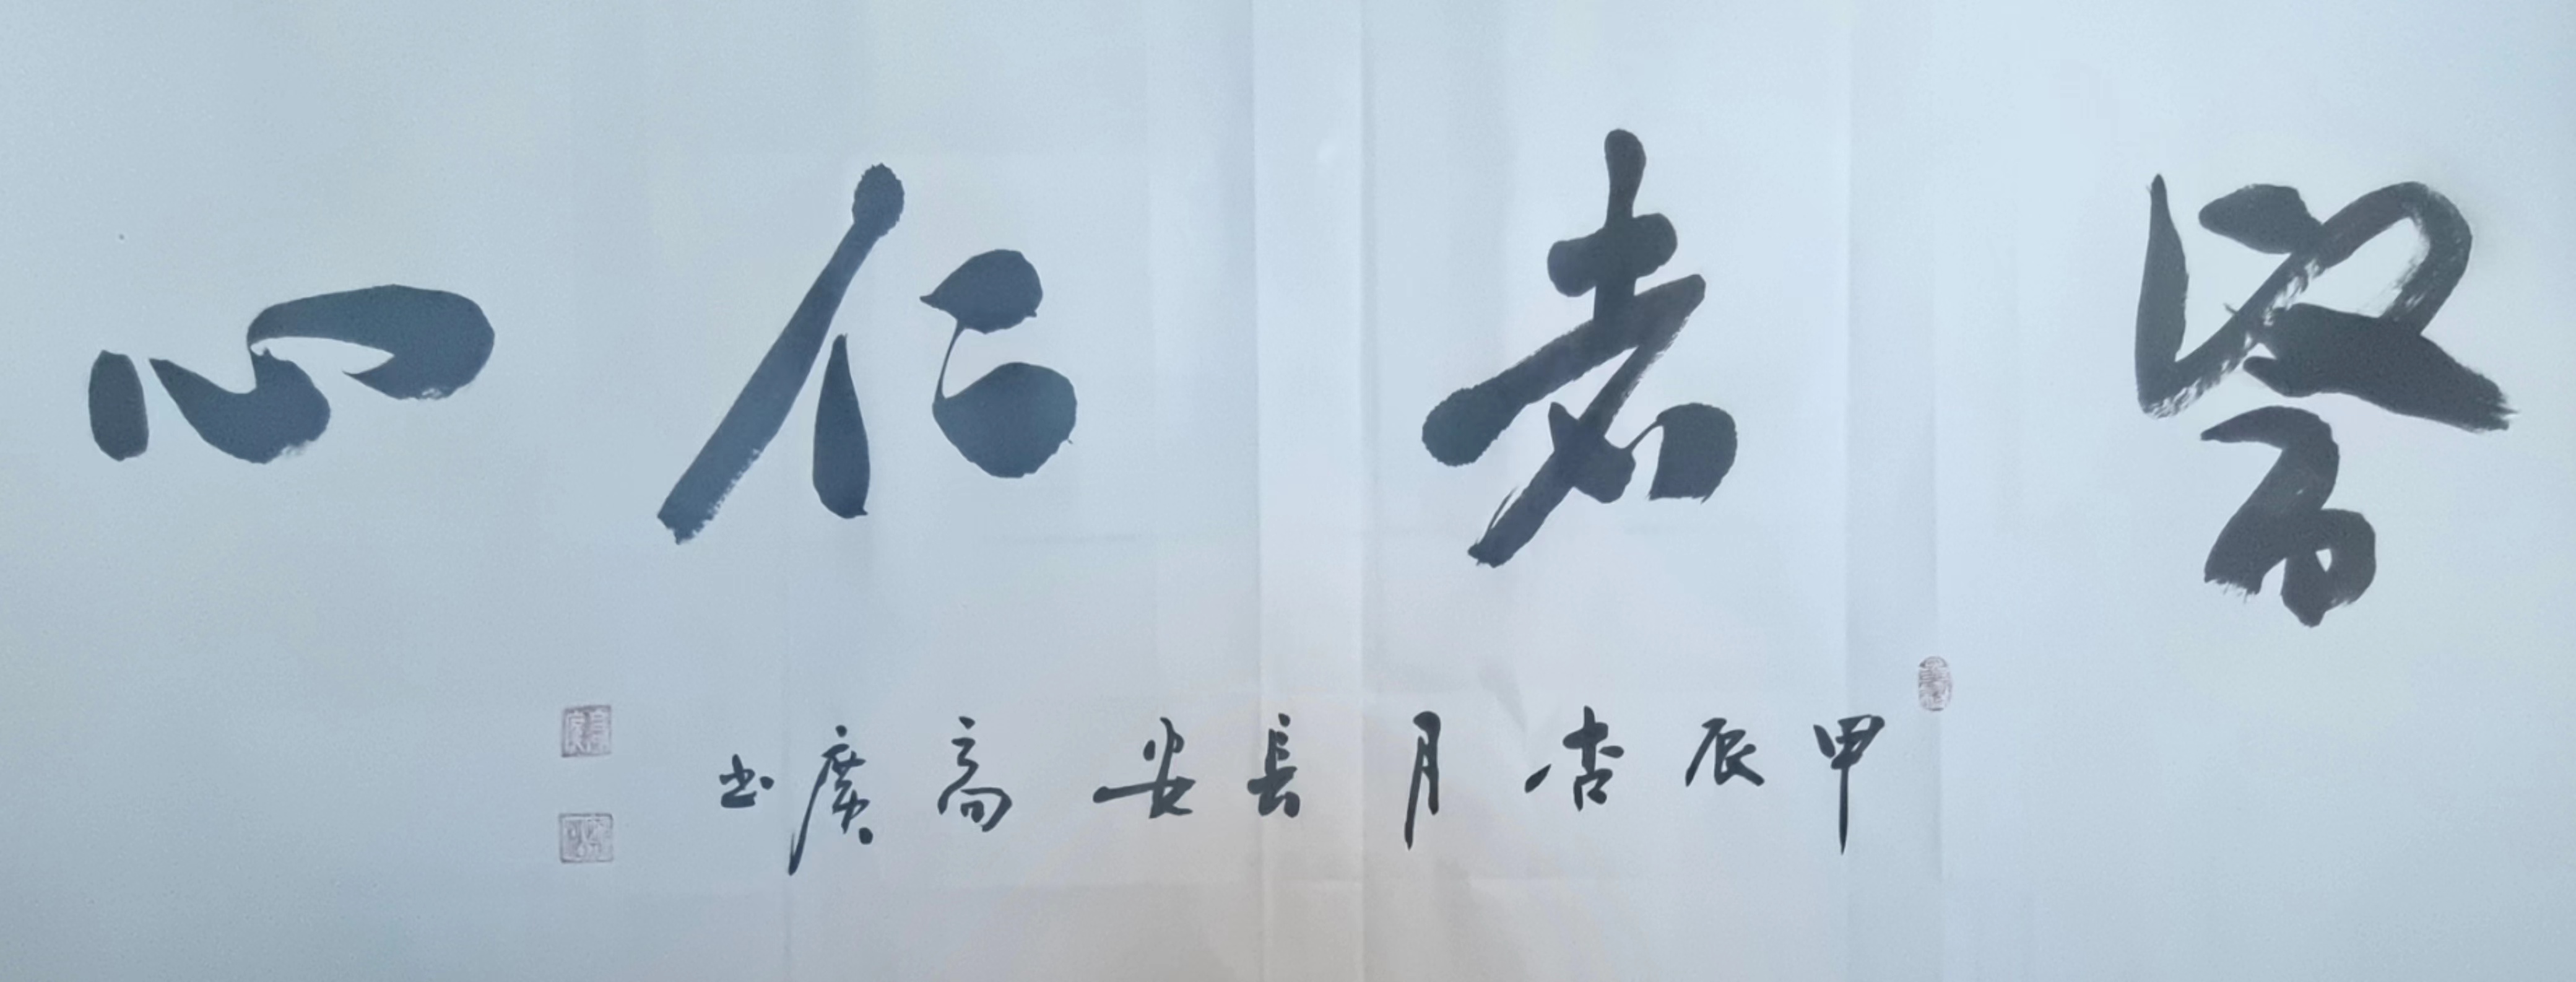 醫者仁心
甲辰杏月長安高廣书